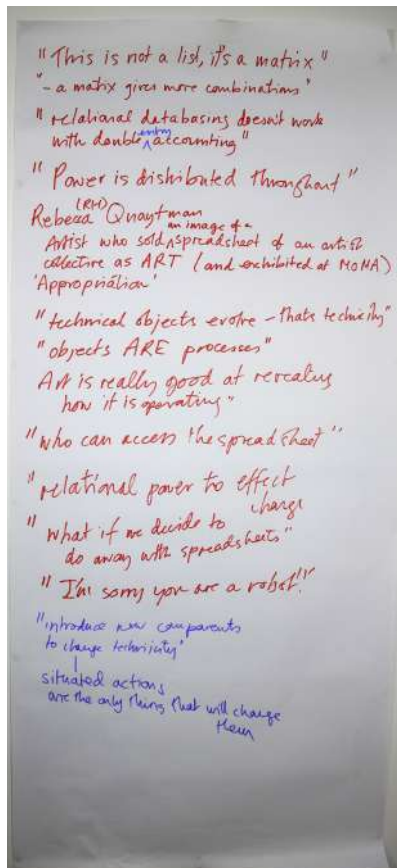 "This is not a list, it's a matrix"
"- a matrix gives more combinations"
"relational databasing doesn't work
with double entry accounting"
"Power is distributed throughout"
(RH)
Rebecca Quaytman
an image of a
Artist who sold spreadsheet of an artist
collective as ART (and exhibited at MoMA)
'Appropriation'
"technical objects evolve – thats technicity"
"objects ARE processes"
Art is really good at revealing
how it is operating"
"who can access the spreadsheet"
"relational power to effect
change
"what if we decide to
do away with spreadsheets"
"I'm sorry you are a robot!"
"introduce new components
to change technicity"
situated actions
are the only thing that will change
them